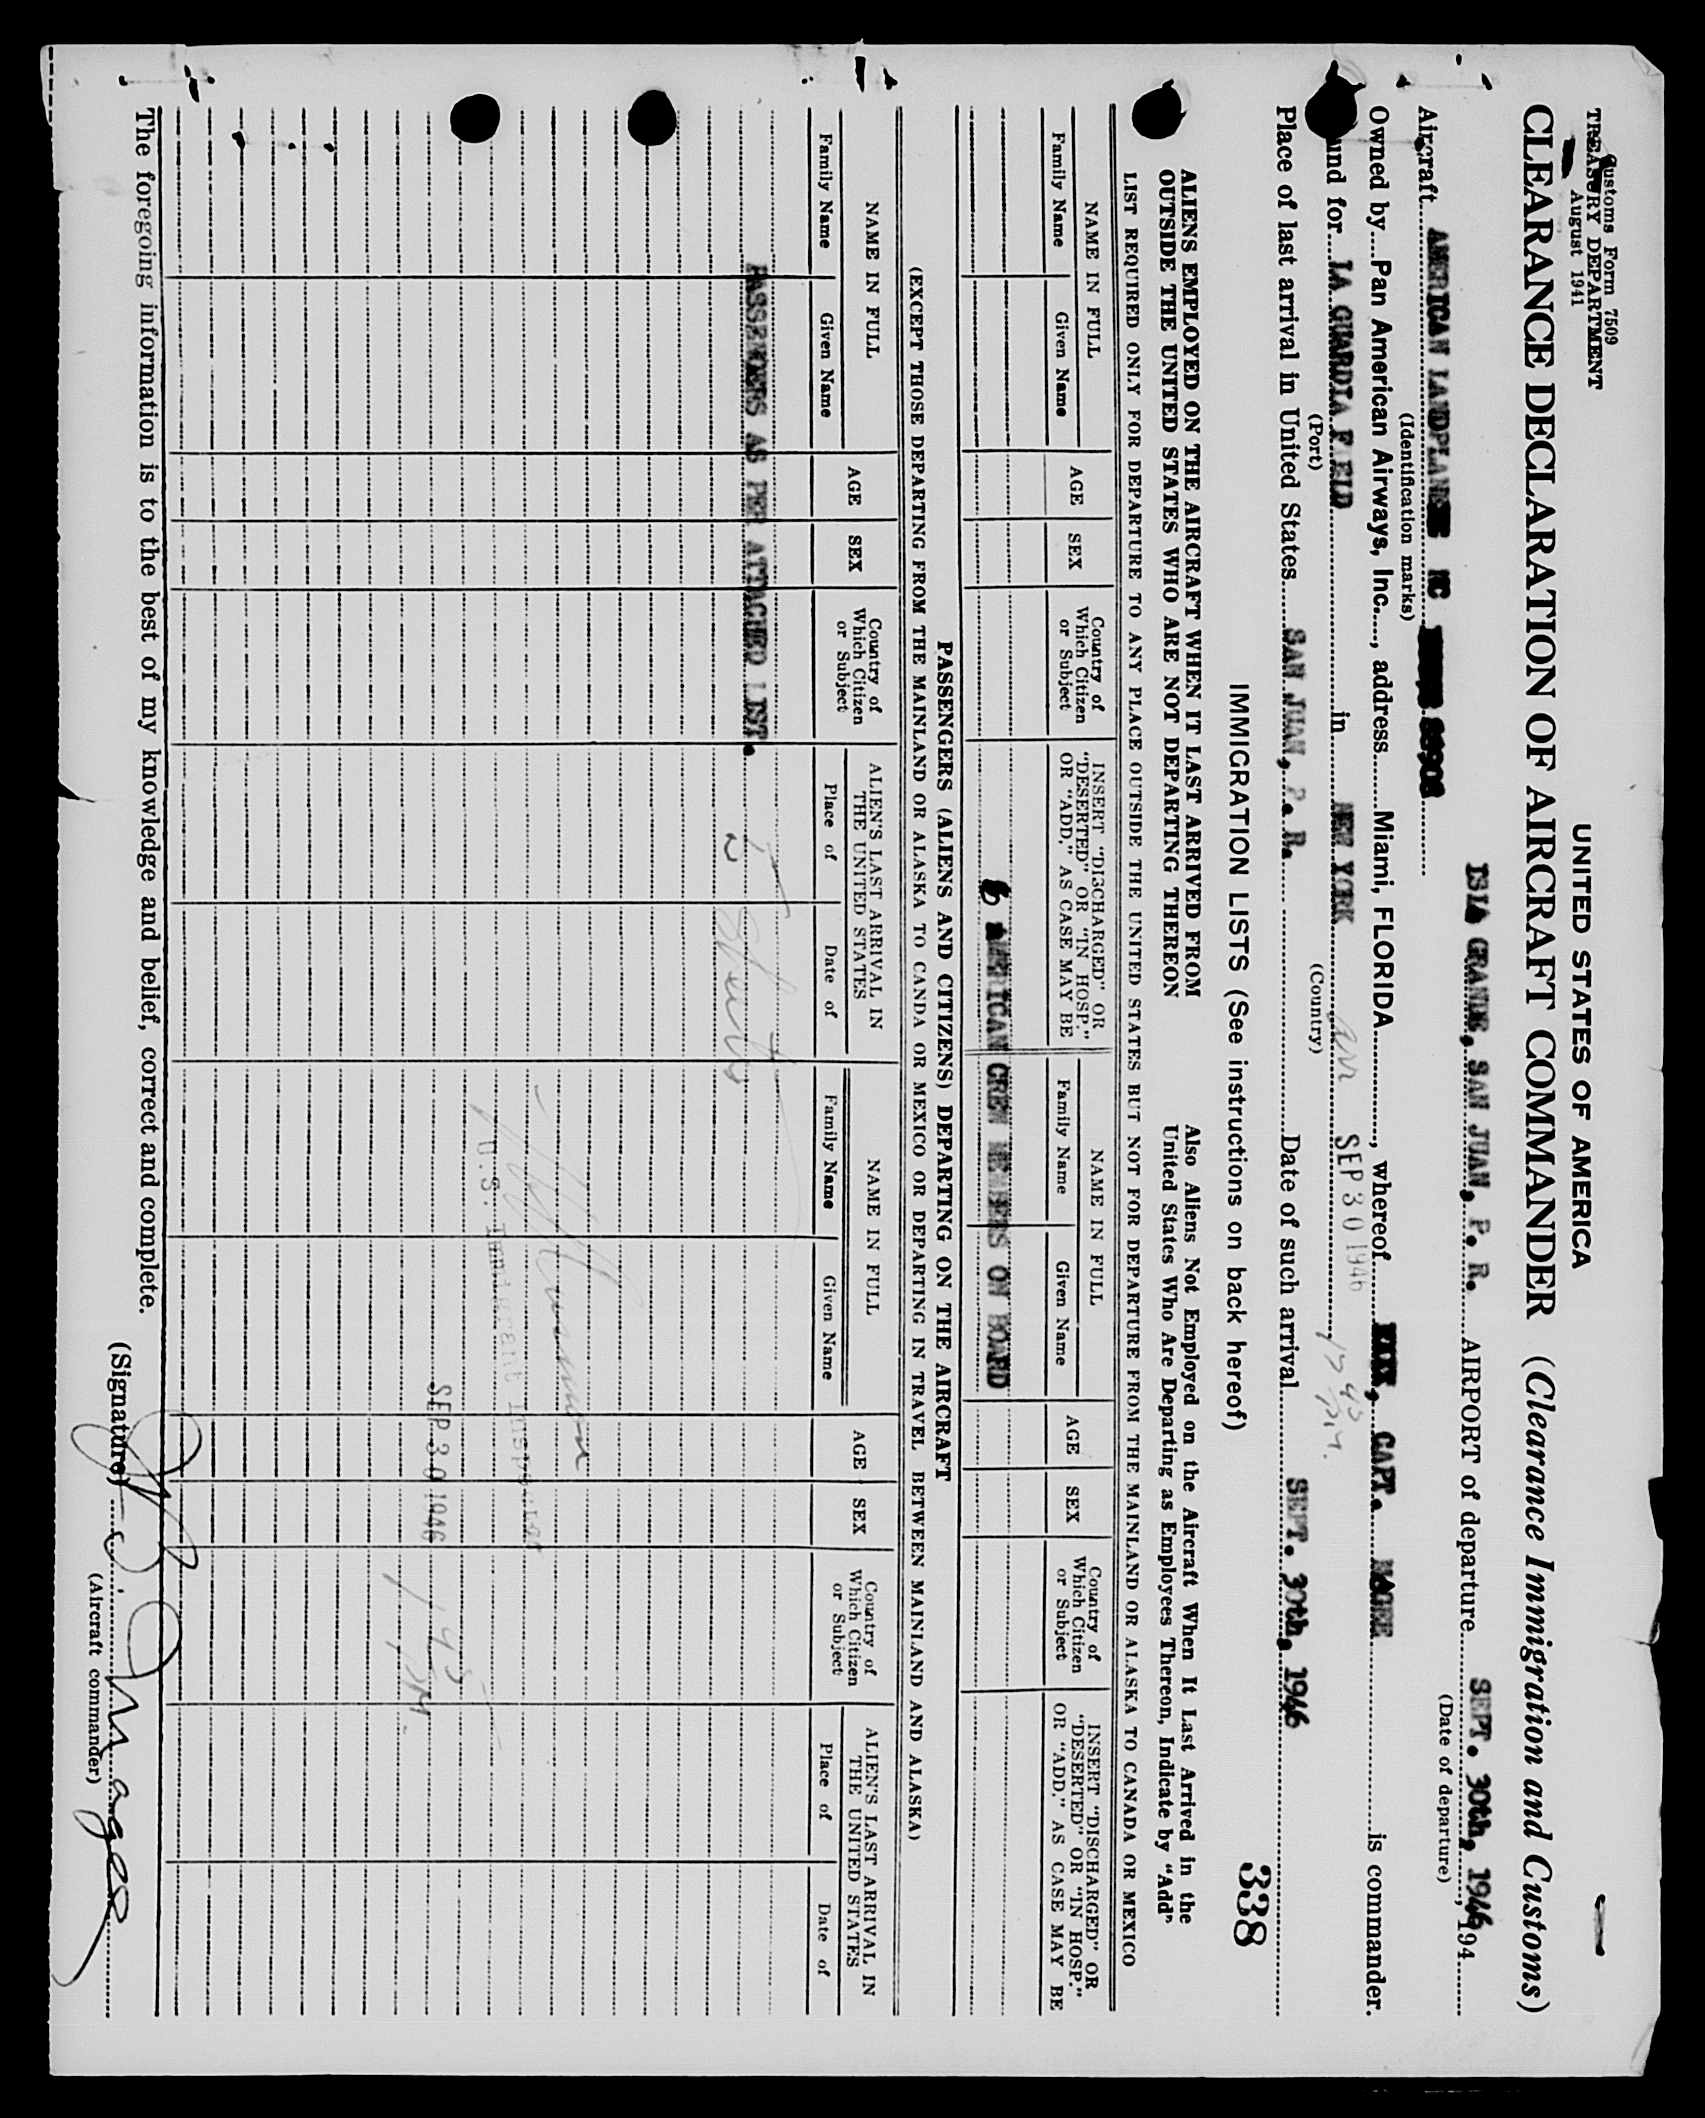 Customs Form 7509
TREASURY DEPARTMENT
August 1941
UNITED STATES OF AMERICA
CLEARANCE DECLARATION OF AIRCRAFT COMMANDER (Clearance Immigration and Customs)
ISLA GRANDE, SAN JUAN, P. R. AIRPORT of departure SEPT. 30th, 1946, 194
(Date of departure)
Aircraft AMERICAN LANDPLANE NC
(Identification marks)
Owned by Pan American Airways, Inc., address Miami, FLORIDA, whereof CAPT. MAGEE is commander.
und for LA GUARDIA FIELD in NEW YORK arr SEP 30 1946
(Port) (Country)
Place of last arrival in United States SAN JUAN, P. R. Date of such arrival SEPT. 30th, 1946
338
IMMIGRATION LISTS (See instructions on back hereof)
ALIENS EMPLOYED ON THE AIRCRAFT WHEN IT LAST ARRIVED FROM
OUTSIDE THE UNITED STATES WHO ARE NOT DEPARTING THEREON
Also Aliens Not Employed on the Aircraft When It Last Arrived in the
United States Who Are Departing as Employees Thereon, Indicate by "Add"
LIST REQUIRED ONLY FOR DEPARTURE TO ANY PLACE OUTSIDE THE UNITED STATES BUT NOT FOR DEPARTURE FROM THE MAINLAND OR ALASKA TO CANADA OR MEXICO
NAME IN FULL
Family Name
Given Name
AGE
SEX
Country of
Which Citizen
or Subject
INSERT "DISCHARGED" OR
"DESERTED" OR "IN HOSP."
OR "ADD." AS CASE MAY BE
NAME IN FULL
Family Name
Given Name
AGE
SEX
Country of
Which Citizen
or Subject
INSERT "DISCHARGED" OR
"DESERTED" OR "IN HOSP."
OR "ADD." AS CASE MAY BE
6 AMERICAN CREW MEMBERS ON BOARD
PASSENGERS (ALIENS AND CITIZENS) DEPARTING ON THE AIRCRAFT
(EXCEPT THOSE DEPARTING FROM THE MAINLAND OR ALASKA TO CANDA OR MEXICO OR DEPARTING IN TRAVEL BETWEEN MAINLAND AND ALASKA)
NAME IN FULL
Family Name
Given Name
AGE
SEX
Country of
Which Citizen
or Subject
ALIEN'S LAST ARRIVAL IN
THE UNITED STATES
Place of
Date of
NAME IN FULL
Family Name
Given Name
AGE
SEX
Country of
Which Citizen
or Subject
ALIEN'S LAST ARRIVAL IN
THE UNITED STATES
Place of
Date of
PASSENGERS AS PER ATTACHED LIST.
U.S. Immigrant Inspector
SEP 30 1946
The foregoing information is to the best of my knowledge and belief, correct and complete.
(Signature) Magee
(Aircraft commander)